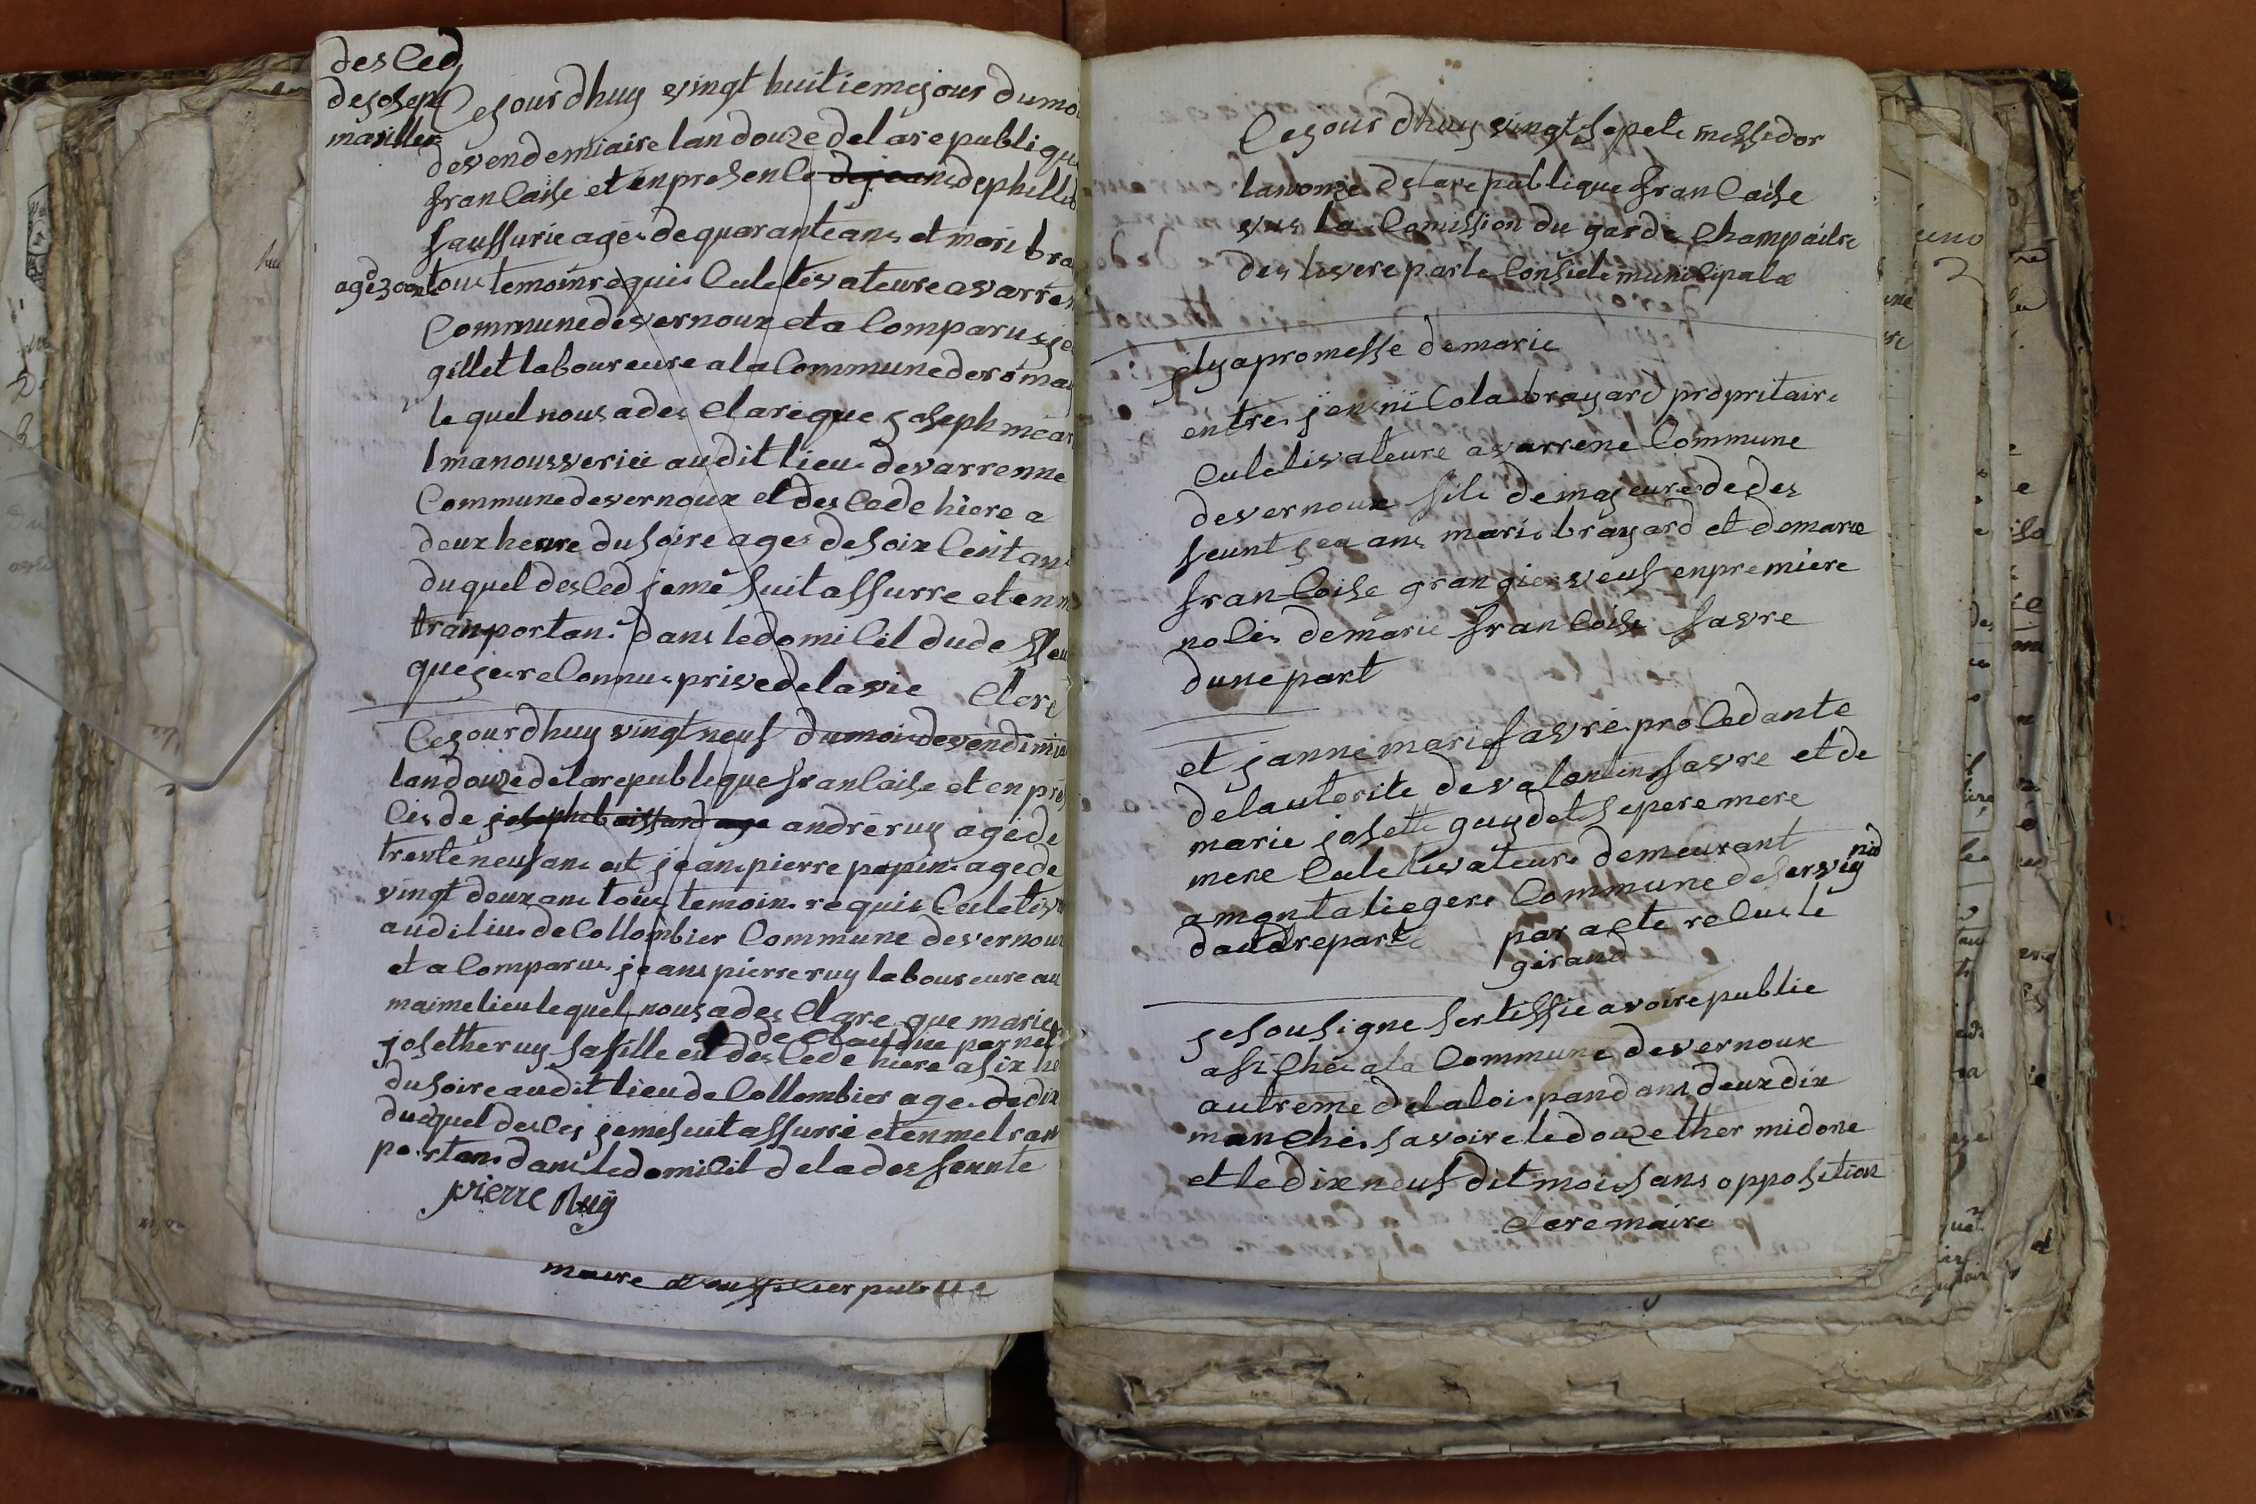 desCed
dejoseph
marillier
Cejourdhuy vingt huitieme jour du moi
devendemiaire lan douze delarepublique
franCaise et en presenCe dejean dephillib
faussurie agé dequaranteans et mari bra
agé 30 an tous temoin requis Culetivateure a varren
Commune devernoux et a Comparus je
gillet laboureure a la Commune de roma
lequel nous a desClare que joseph mear
manousverié audit lieu devarrenne
Commune devernoux et desCede hiere a
deux heure du soire agé de soixCent ans
duquel desCed jeme suit assurre et en m
tranportant dans ledomiCil dude
que je reConnu privedelavie Clere
Cejourdhuy vingt neuf dumoi devendimia
landouze delarepublique franCaise et en pres
Cis de joseph boissard age andré ruy agé de
trente neuf ans et jean pierre popin age de
vingt deux ans tous temoin requis Culetiv
audi lieu de Collombier Commune devernoux
et a Comparu jean pierre ruy laboureure au
maime lieu lequel nous a desClare que marie
de Claudine pernet
josethe ruy safille est desCede hiere a six he
du soire audit lieu de Collombier age de dix
duquel desCes jeme suit assurré et enmetran
portan dans ledomiCil deladessennte
pierre Ruy
maire
Cejour dhuy vingt sepete messedor
lanonze delarepublique franCaise
vus la Comission du garde Champaitre
deslivere par le Conseile muniCipale
jlyapromesse demarie
entre jean niCola brayard propritaire
Culetivateure a varrene Commune
devernoux fils demajeure dedes
feunt jean mari brayard et demarie
franCoise grangier veuf enpremiere
noCes demarie franCoise favre
dunepart
et janne marie favre proCedante
delautorite devalantin favre et de
marie josette guydet sepere mere
mere Culetivateure demeurant
amontaliegere Commune deservig
nid
dautrepart par acte reCus le
girand
jesousigne sertiffie avoire publie
afiChé ala Commune devernoux
autreme delaloi pandans deuxdix
manChe savoire ledouze thermidore
et ledixneuf dit mois sans opposition
Clere maire